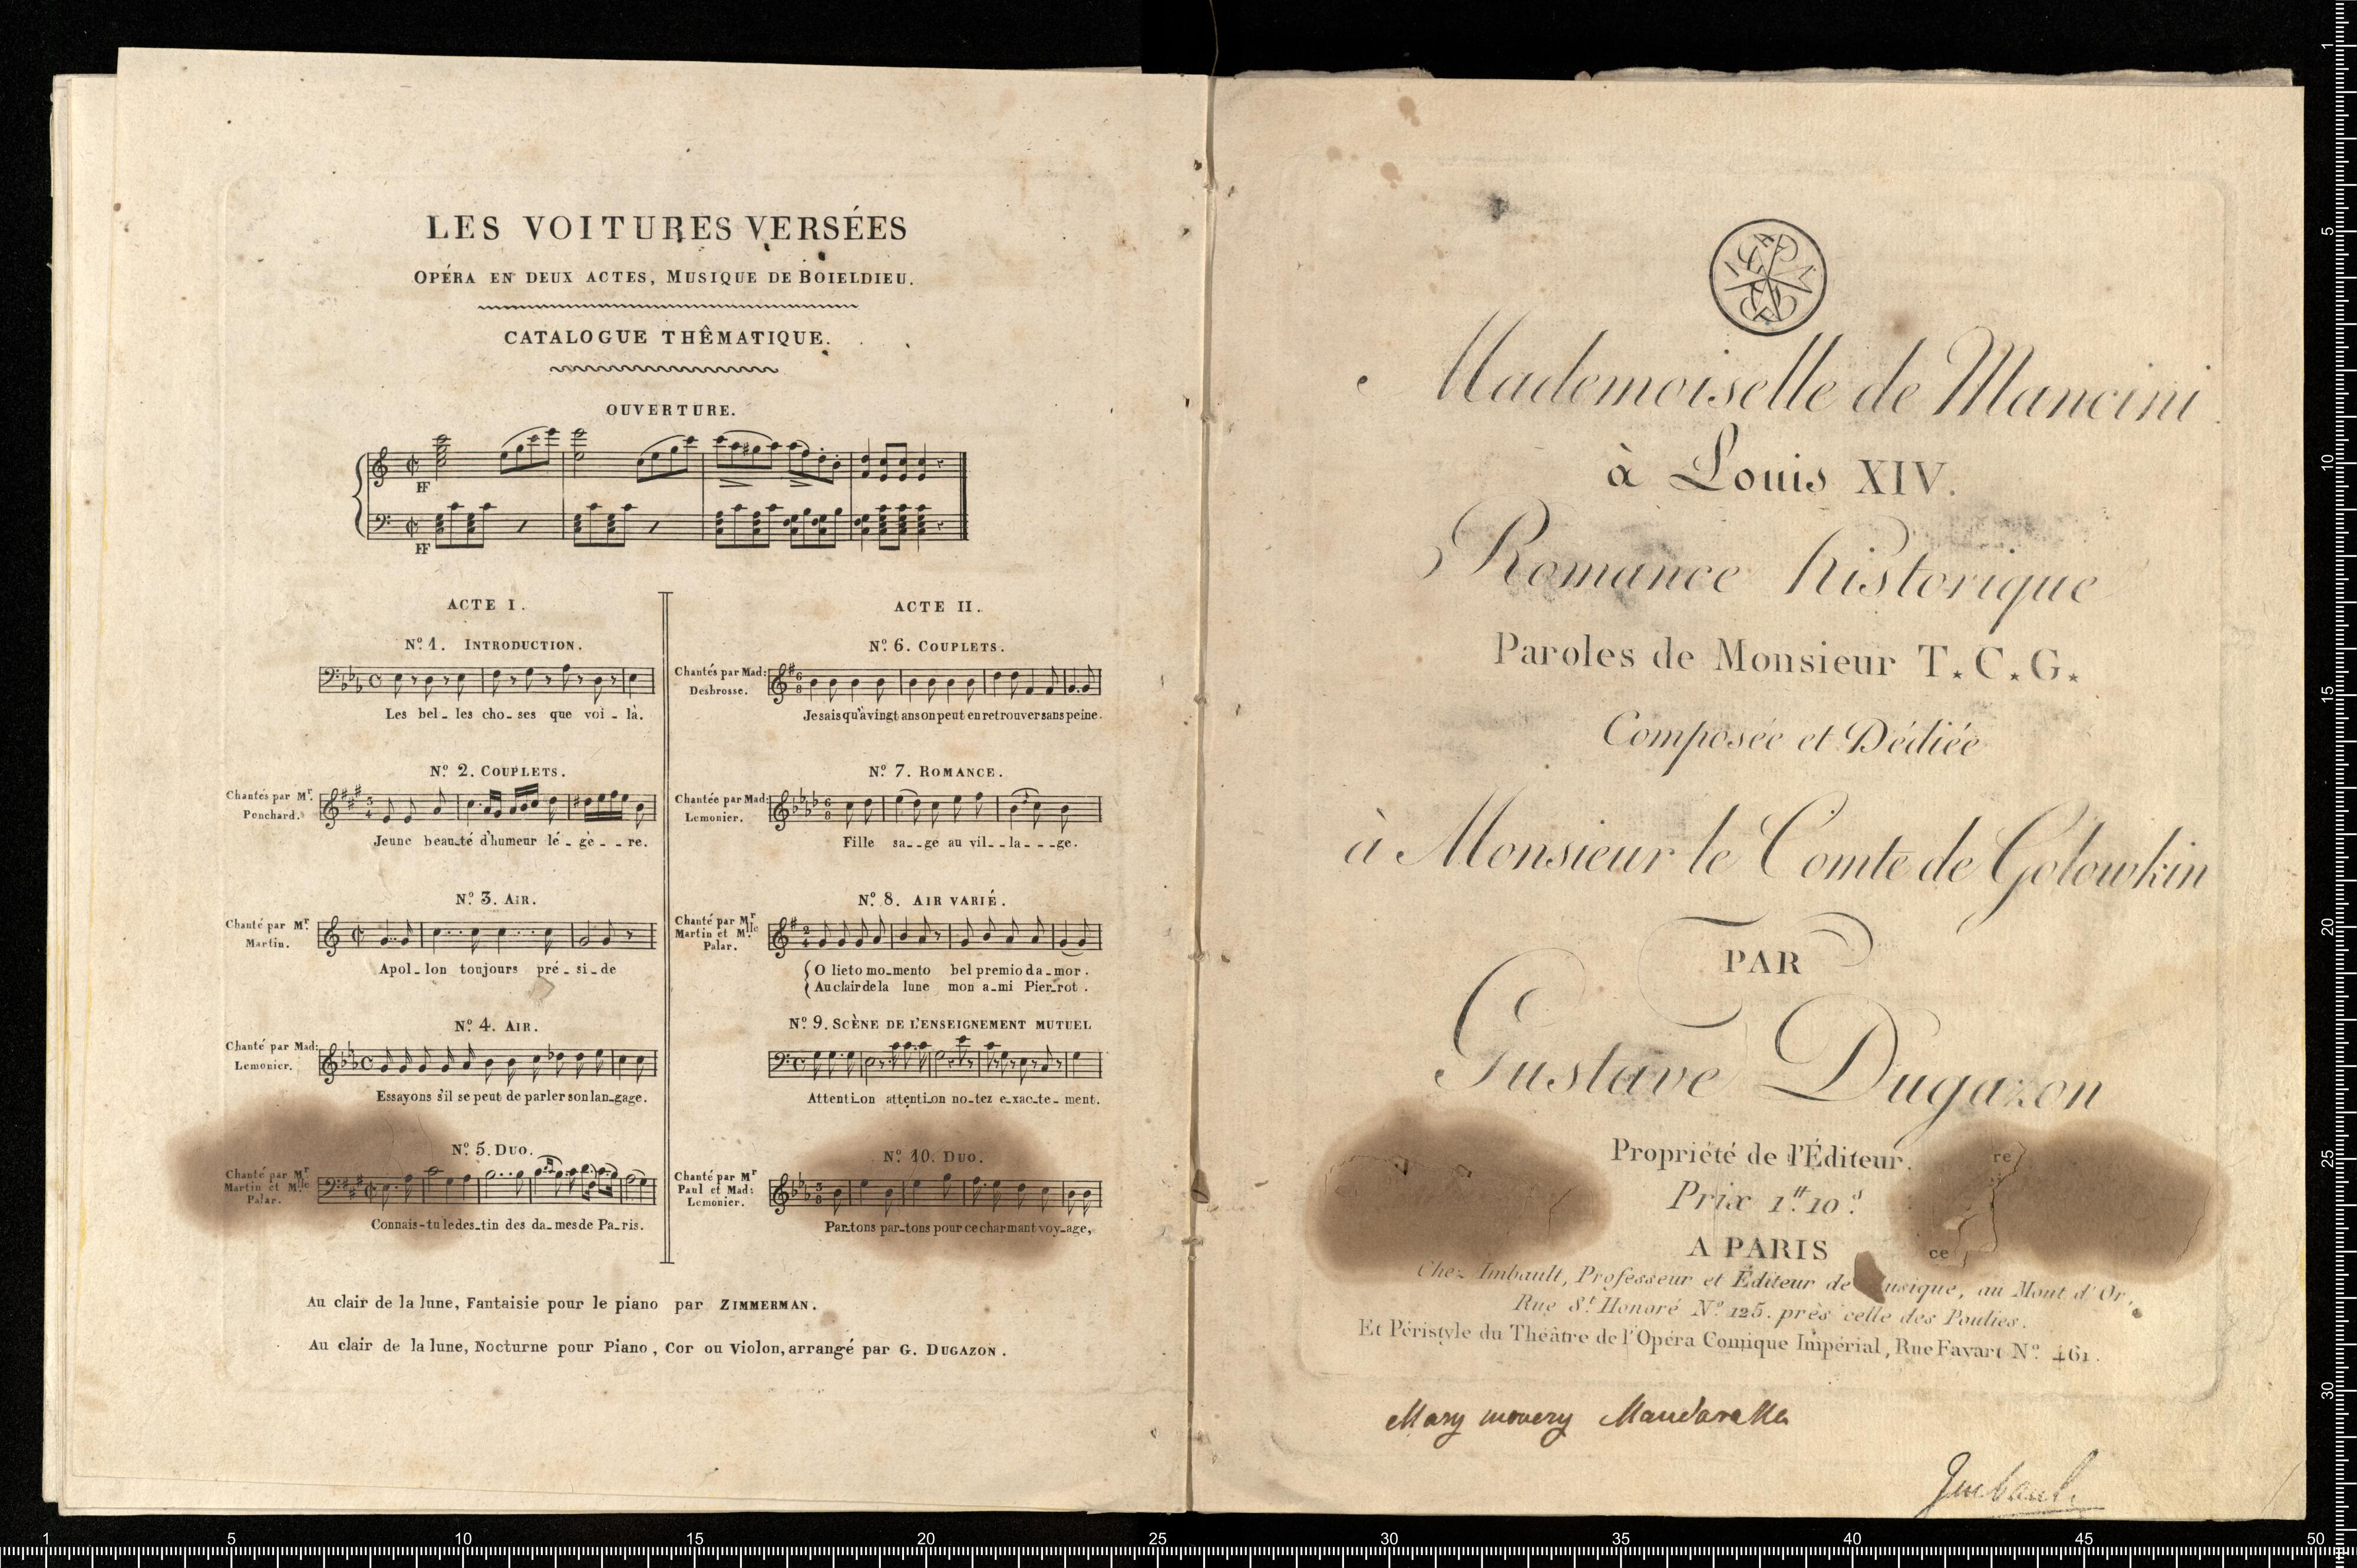 LES VOITURES VERSÉES
OPÉRA EN DEUX ACTES, MUSIQUE DE BOIELDIEU.
CATALOGUE THÊMATIQUE.
OUVERTURE.
FF
FF
ACTE I.
Nº 1. INTRODUCTION.
Les bel_les cho_ses que voi_là.
Nº 2. COUPLETS.
Chantés par Mr.
Ponchard.
Jeune beau_té d'humeur lé_gè__re.
Nº 3. AIR.
Chanté par Mr.
Martin.
Apol_lon toujours pré_si_de
Nº 4. AIR.
Chanté par Mad:
Lemonier.
Essayons s'il se peut de parler son lan_gage.
Nº 5. DUO.
Chanté par Mr
Martin et Mlle
Palar.
Connais-tu le des_tin des da_mes de Pa_ris.
ACTE II.
Nº 6. COUPLETS.
Chantés par Mad:
Desbrosse.
Je sais qu'à vingt ans on peut en retrouver sans peine.
Nº 7. ROMANCE.
Chantée par Mad:
Lemonier.
Fille sa__ge au vil__la___ge.
Nº 8. AIR VARIÉ.
Chanté par Mr
Martin et Mlle
Palar.
O lieto mo_mento bel premio da_mor.
Au clair de la lune mon a_mi Pier_rot.
Nº 9. SCÈNE DE L'ENSEIGNEMENT MUTUEL
Attenti_on attenti_on no_tez e_xac_te_ment.
Nº 10. DUO.
Chanté par Mr
Paul et Mad:
Lemonier.
Par_tons par_tons pour ce charmant voy_age,
Au clair de la lune, Fantaisie pour le piano par ZIMMERMAN.
Au clair de la lune, Nocturne pour Piano, Cor ou Violon, arrangé par G. DUGAZON.
Mademoiselle de Mancini
à Louis XIV.
Romance historique
Paroles de Monsieur T.C.G.
Composée et Dédiée
à Monsieur le Comte de Golowkin
PAR
Gustave Dugazon
Propriété de l'Éditeur.
re
Prix 1tt 10s.
A PARIS
ce
Chez Imbault, Professeur et Éditeur de usique, au Mont d'Or,
Rue St. Honoré Nº 125. près celle des Poulies.
Et Péristyle du Théâtre de l'Opéra Comique Impérial, Rue Favart Nº 461.
Mary
Imbault
1 5 10 15 20 25 30 35 40 45 50
1
5
10
15
20
25
30